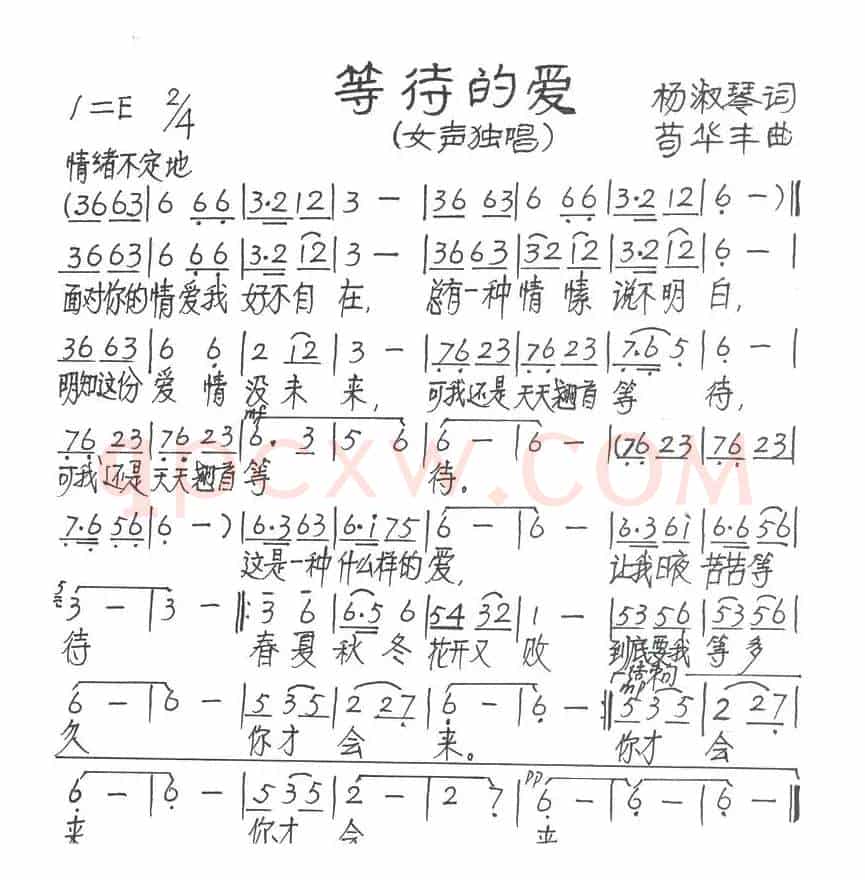 等待的爱
(女声独唱)
杨淑琴词
苟华丰曲
1=E 2/4
情绪不定地
(36 63|6 66|3·2 12|3 —|36 63|6 66|3·2 12|6 —)‖
36 63|6 66|3·2 12|3 —|36 63|32 12|3·2 12|6 —|
面对你的情爱我 好不自在, 总有一种情愫 说不明白,
36 63|6 6|2 12|3 —|76 23|76 23|7·6 5|6 —|
明知这份爱情没未来, 可我还是天天翘首等待,
mf
76 23|76 23|6· 3|5 6|6 —|6 —|(76 23|76 23|
可我还是天天翘首等 待。
7·6 56|6 —)|6·3 63|6·i 75|6 —|6 —|6·3 6i|6·6 56|
这是一种什么样的爱, 让我日夜苦苦等
5 3 —|3 —‖:3 6|6·5 6|54 32|1 —|53 56|53 56|
待 春夏秋冬花开又败 到底要我等多
结束句
mp
6 —|6 —|5 35|2 27|6 —|6 —:‖5 35|2 27|
久 你才会来。 你才会
pp
6 —|6 —|5 35|2 —|2 7|6 —|6 —|6 —‖
来 你才会 来
qpcxw.com